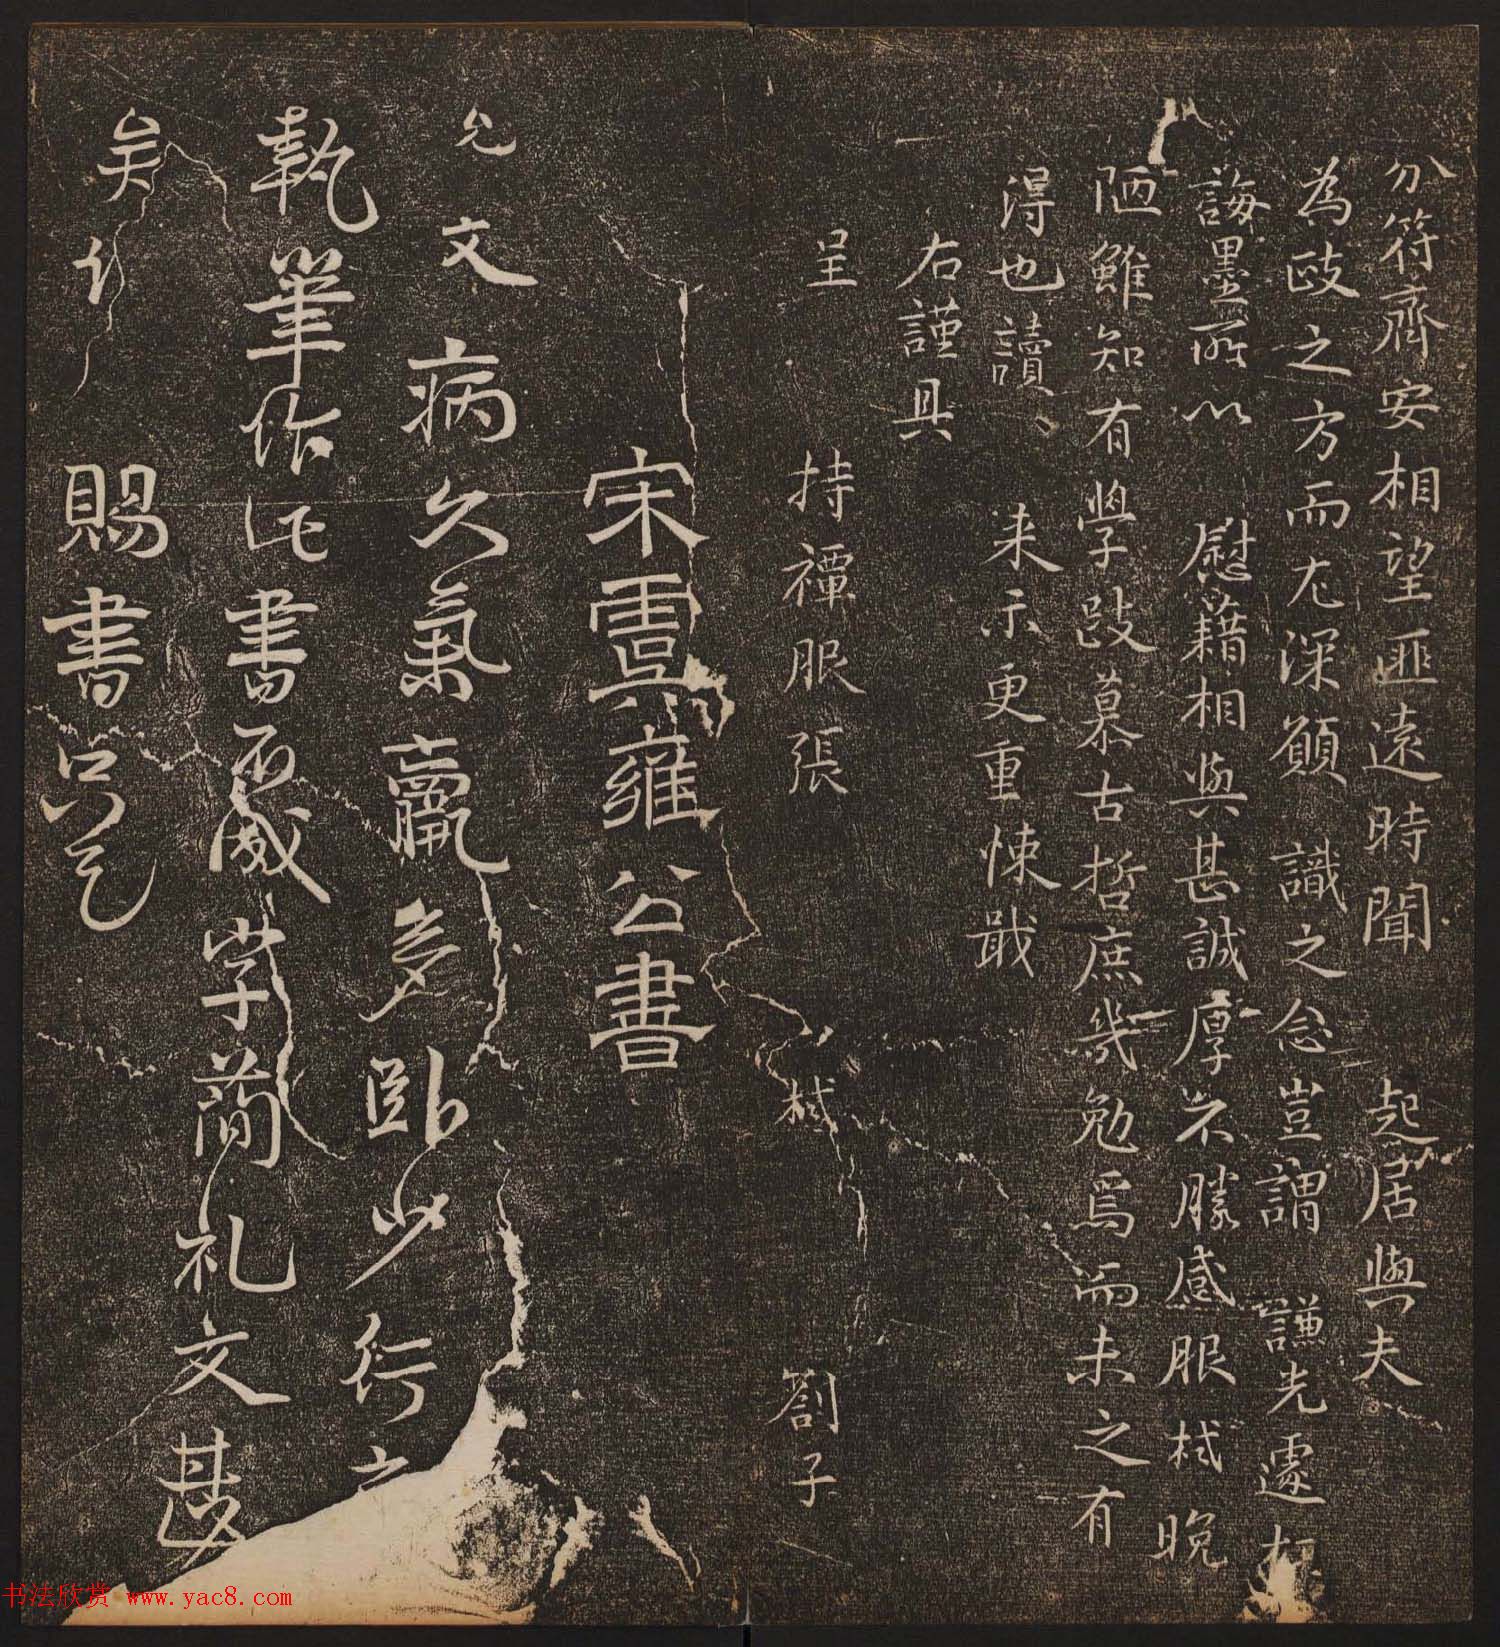 分符齊安相望匪遠時聞 起居與夫
為政之方而尤深願 識之念豈謂 謙光遽枉
誨墨所以 慰藉相與甚誠厚不勝感服栻晚
陋雖知有學跂慕古哲庶幾勉焉而未之有
得也讀、 来示更重悚戢
右謹具
呈 持禫服張 栻 劄子
宋雍公書
允文病久氣羸多卧少行
執筆作書字簡札文甚
矣行 賜書只是
书法欣赏 www.yac8.com